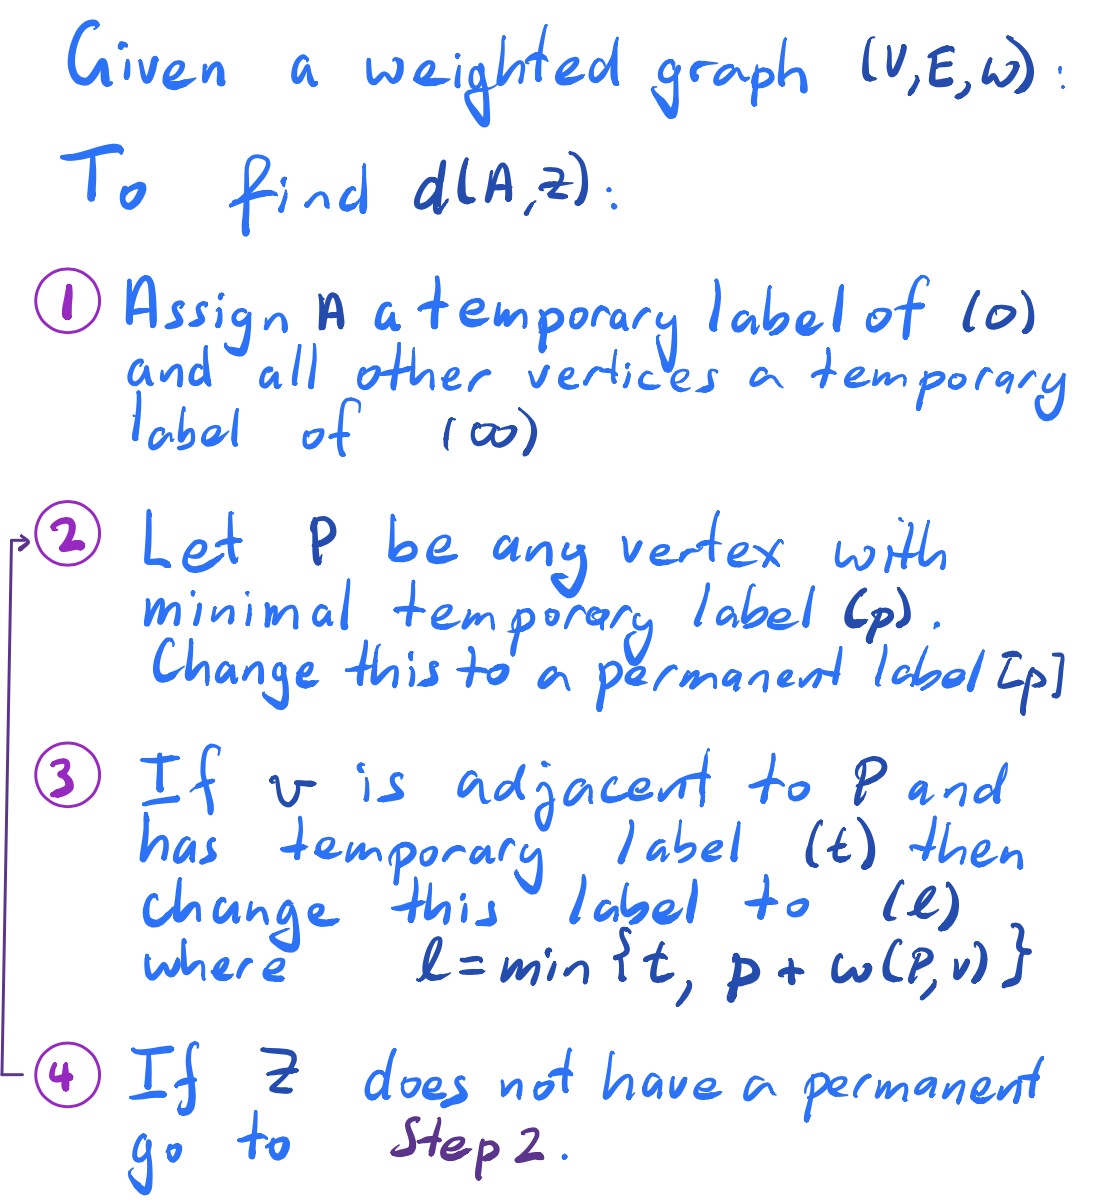 Given a weighted graph (V,E,w):
To find d(A,Z):
1 Assign A a temporary label of (0)
and all other vertices a temporary
label of (∞)
2 Let P be any vertex with
minimal temporary label (p).
Change this to a permanent label [p]
3 If v is adjacent to P and
has temporary label (t) then
change this label to (ℓ)
where ℓ = min{t, p + w(P,v)}
4 If Z does not have a permanent
go to Step 2.